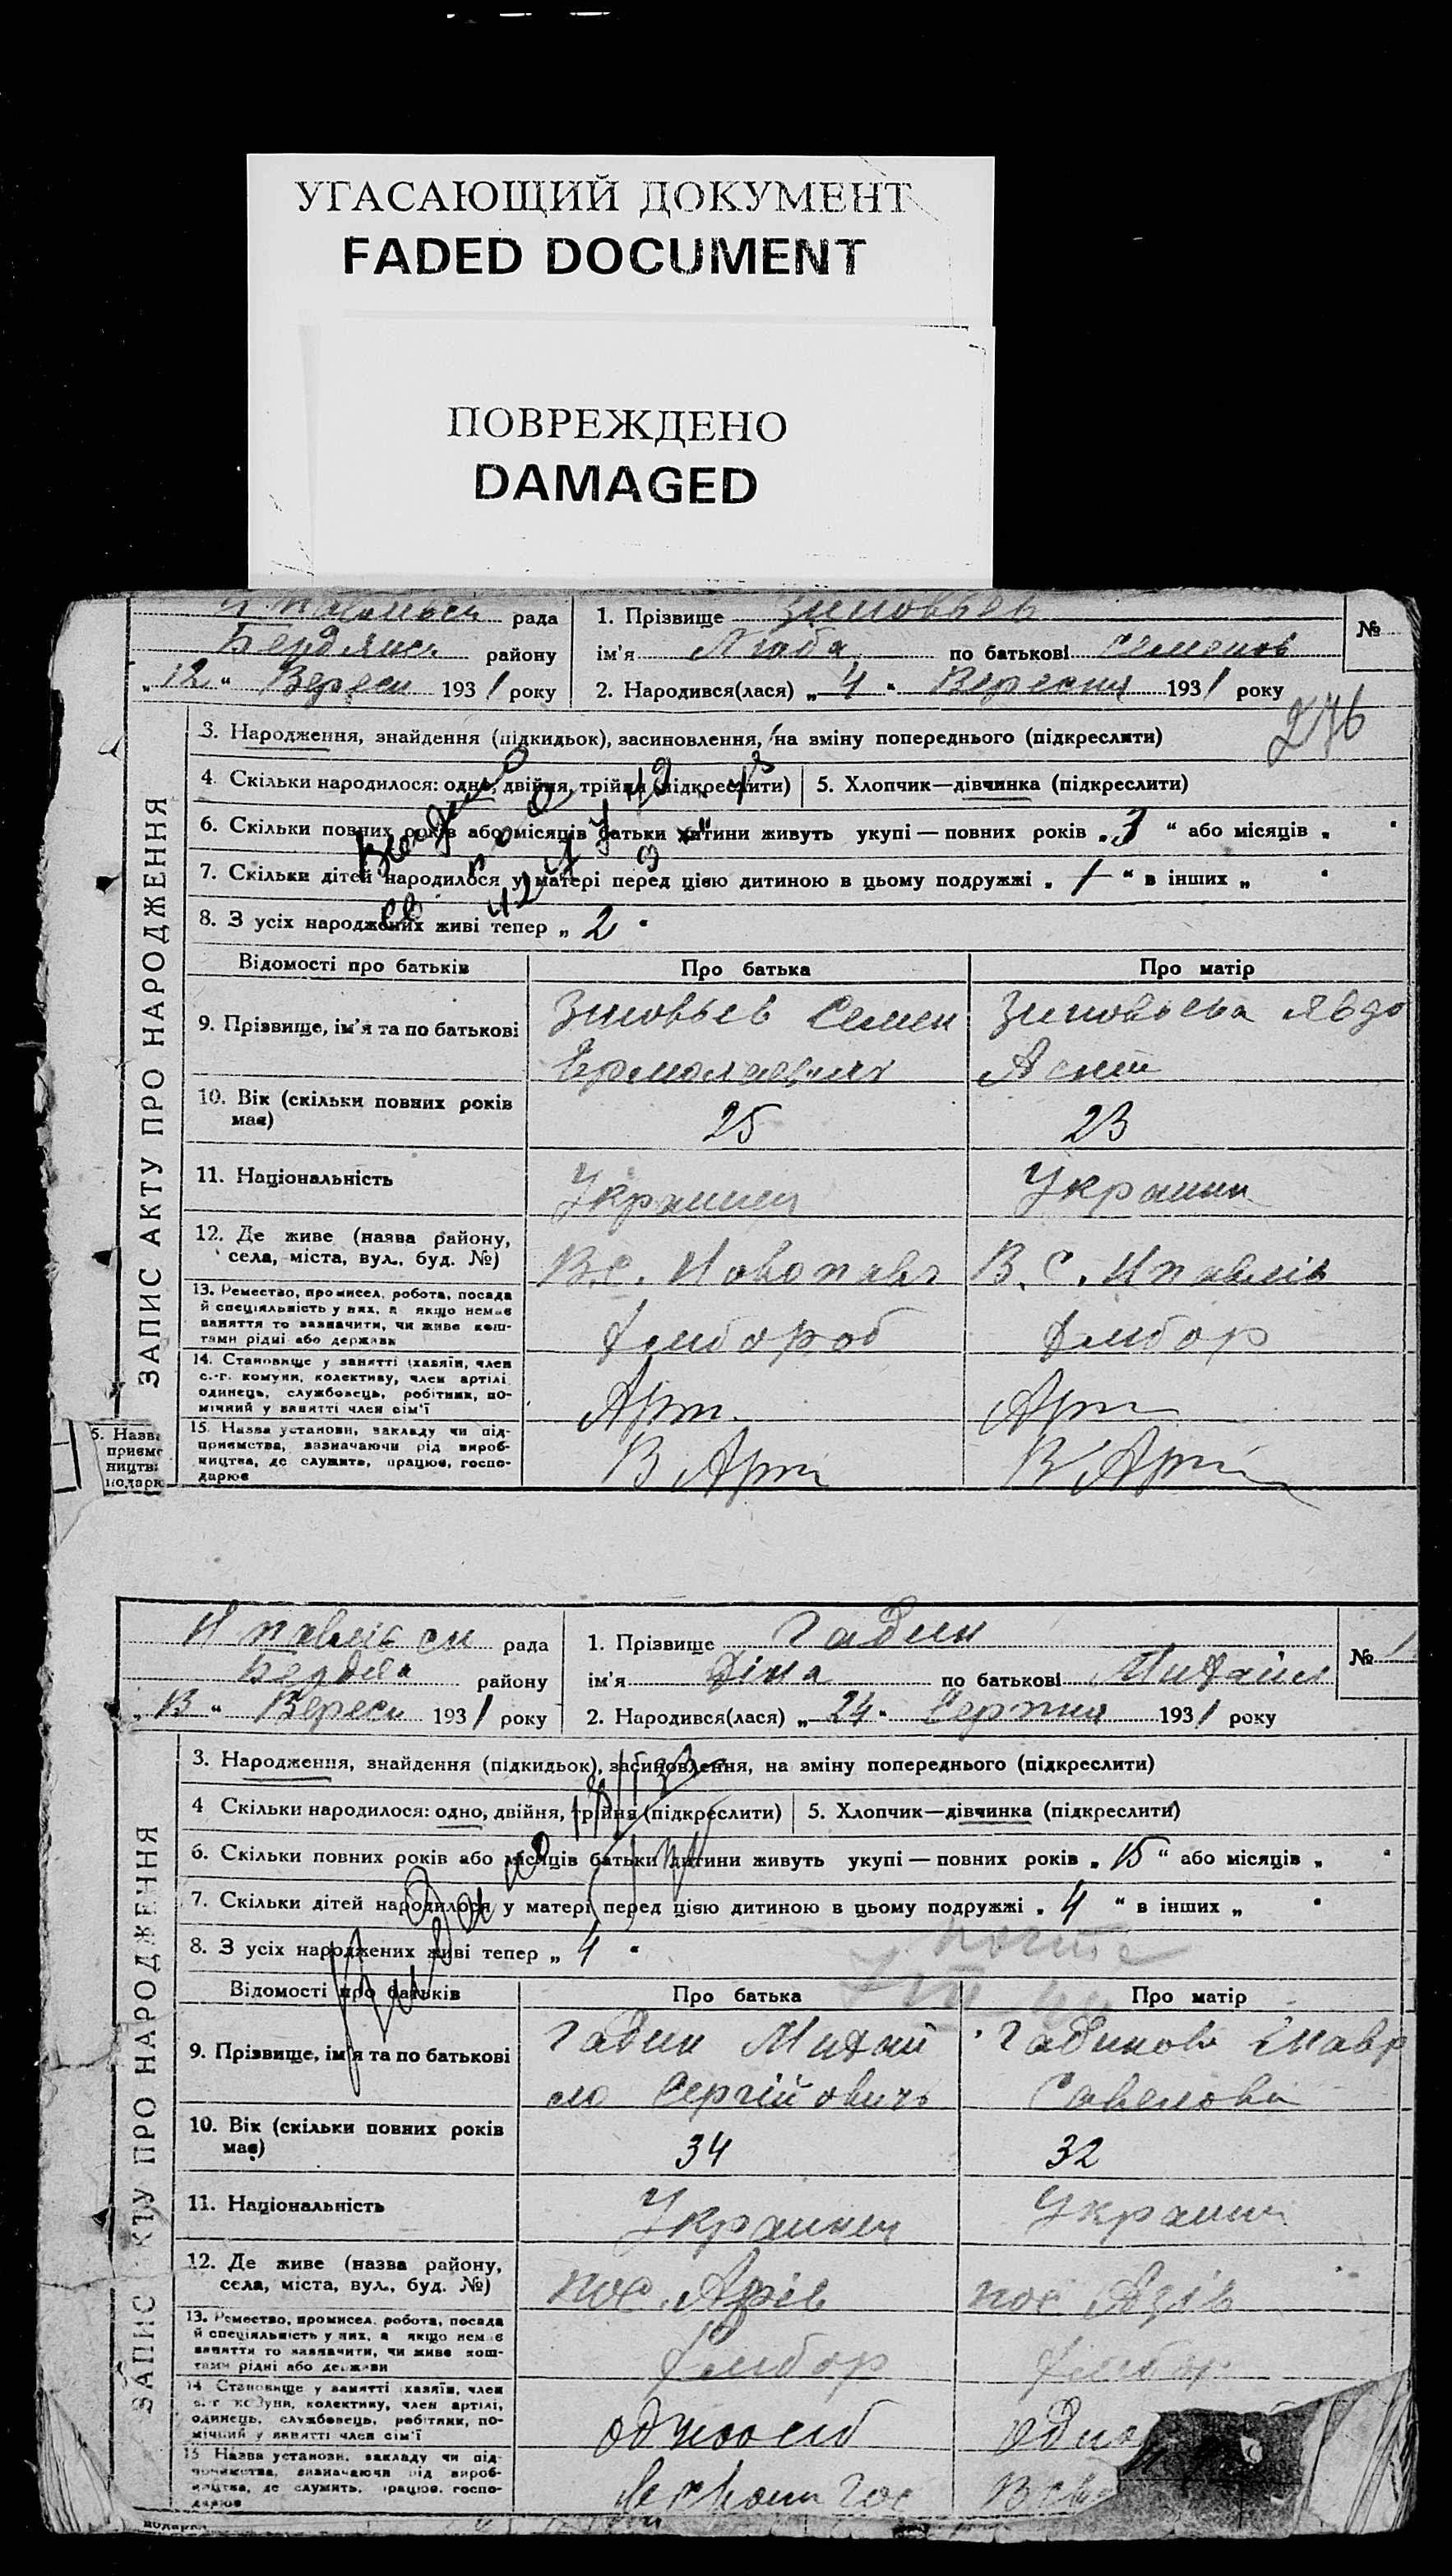 УГАСАЮЩИЙ ДОКУМЕНТ
FADED DOCUMENT
ПОВРЕЖДЕНО
DAMAGED
рада
1. Прізвище Зиновьев
№
района
Бердянск району
ім'я Люба по батькові Семенов
„ 12 “ Вересн 1931 року
2. Народився(лася) „ 4 “ Вересня 1931 року
276
ЗАПИС АКТУ ПРО НАРОДЖЕННЯ
3. Народження, знайдення (підкидьок), засиновлення, на зміну попереднього (підкреслити)
4. Скільки народилося: одно, двійня, трійня (підкреслити)
5. Хлопчик—дівчинка (підкреслити)
6. Скільки повних років або місяців батьки дитини живуть укупі — повних років „ 3 “ або місяців „ “
7. Скільки дітей народилося у матері перед цією дитиною в цьому подружжі „ 1 “ в інших „ “
8. З усіх народжених живі тепер „ 2 “
Відомості про батьків
Про батька
Про матір
9. Прізвище, ім'я та по батькові
Зиновьев Семен
Ермолаевич
Зиновьева Явдо
10. Вік (скільки повних років має)
25
23
11. Національність
Украинец
Украинк
12. Де живе (назва району,
села, міста, вул., буд. №)
В.С. Новопавл
В.С. Нпавлів
13. Ремество, промисел, робота, посада
й спеціяльність у них, а якщо немає
заняття то зазначити, чи живе кош-
тами рідні або держави
Хлибороб
Хлибор
14. Становище у занятті (хазяїн, член
с.-г. комуни, колективу, член артілі
одинець, службовець, робітник, по-
мічний у занятті член сім'ї
Арт.
Арт
15. Назва установи, закладу чи під-
приємства, зазначаючи рід вироб-
ництва, де служить, працює, госпо-
дарює
В Арт
В Арті
рада
1. Прізвище Гадин
№ 1
Бердян району
ім'я Діна по батькові Михайл
„ 13 “ Вересн 1931 року
2. Народився(лася) „ 24 “ Серпня 1931 року
ЗАПИС АКТУ ПРО НАРОДЖЕННЯ
3. Народження, знайдення (підкидьок), засиновлення, на зміну попереднього (підкреслити)
4 Скільки народилося: одно, двійня, трійня (підкреслити)
5. Хлопчик—дівчинка (підкреслити)
6. Скільки повних років або місяців батьки дитини живуть укупі — повних років „ 15 “ або місяців „ “
7. Скільки дітей народилося у матері перед цією дитиною в цьому подружжі „ 4 “ в інших „ “
8. З усіх народжених живі тепер „ 4 “
Відомості про батьків
Про батька
Про матір
9. Прізвище, ім'я та по батькові
Гадин Михай
ло Сергійовичь
Гадинова Мавр
Савелова
10. Вік (скільки повних років має)
34
32
11. Національність
Украинец
Украин
12. Де живе (назва району,
села, міста, вул., буд. №)
пос. Азів
пос Азів
13. Ремество, промисел, робота, посада
й спеціяльність у них, а якщо немає
заняття то зазначити, чи живе кош-
тами рідні або держави
Хлибор
Хлибор
14 Становище у занятті хазяїн, член
с.-г комуни, колективу, член артілі,
одинець, службовець, робітник, по-
мічний у занятті член сім'ї
одноосіб
одно
15 Назва установи, закладу чи під-
приємства, зазначаючи рід вироб-
ництва, де служить, працює, госпо-
дарює